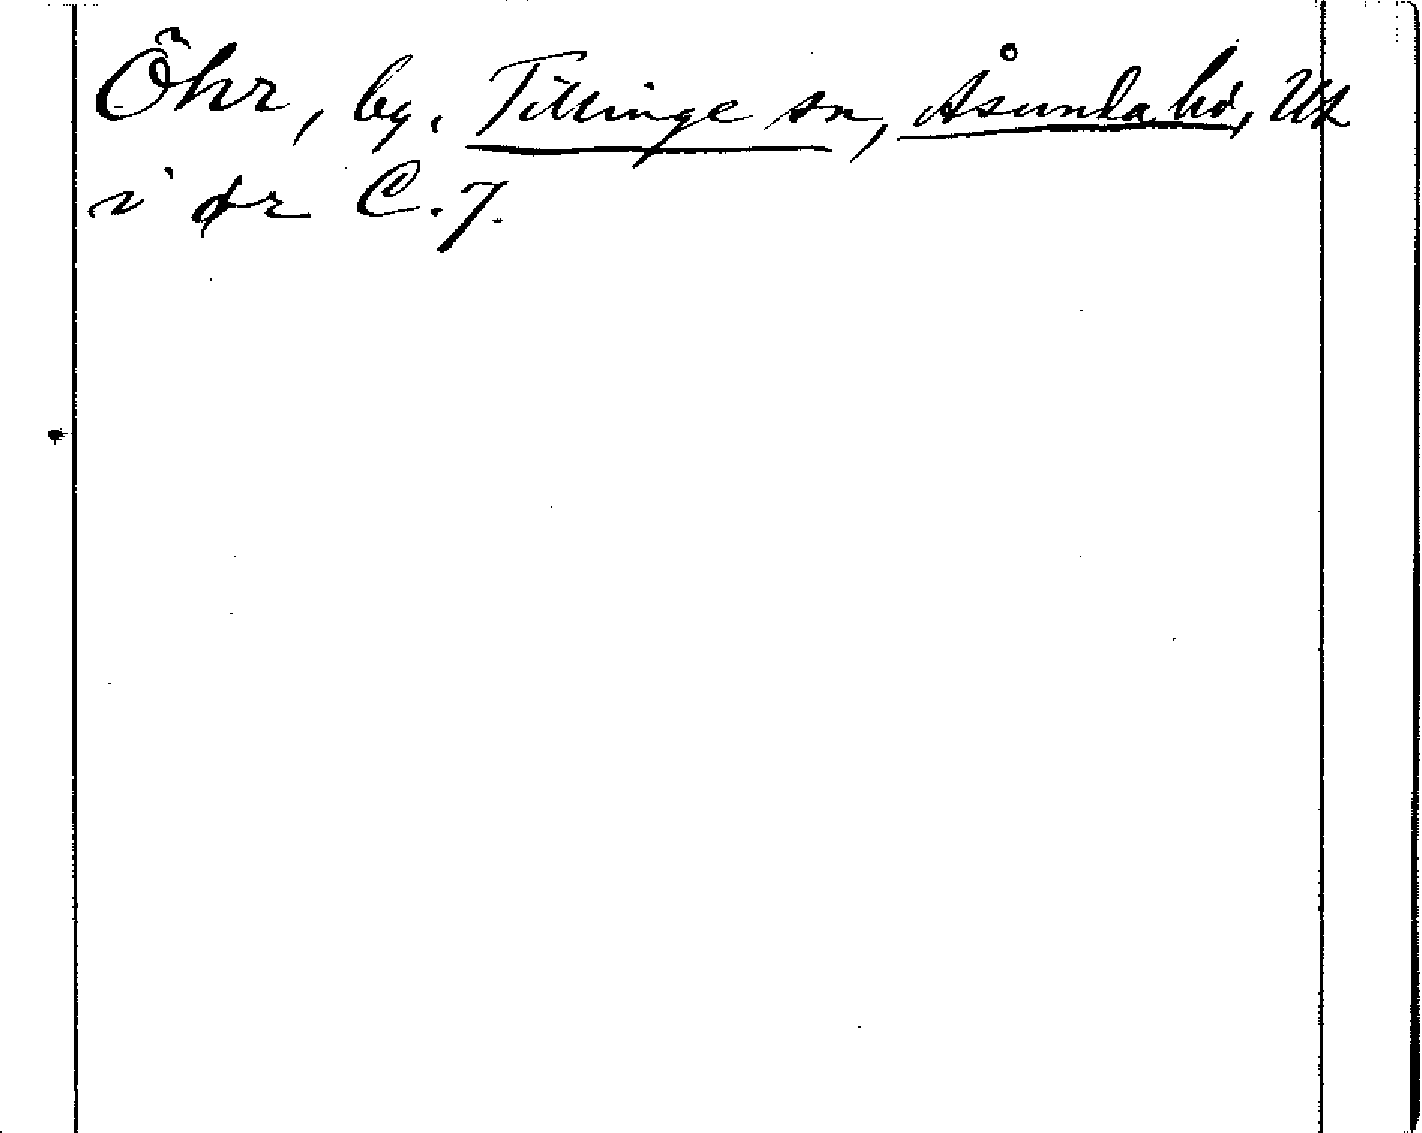 Öhr, by, Tillinge sn, Åsunda hd, Upl
i ör C.7.